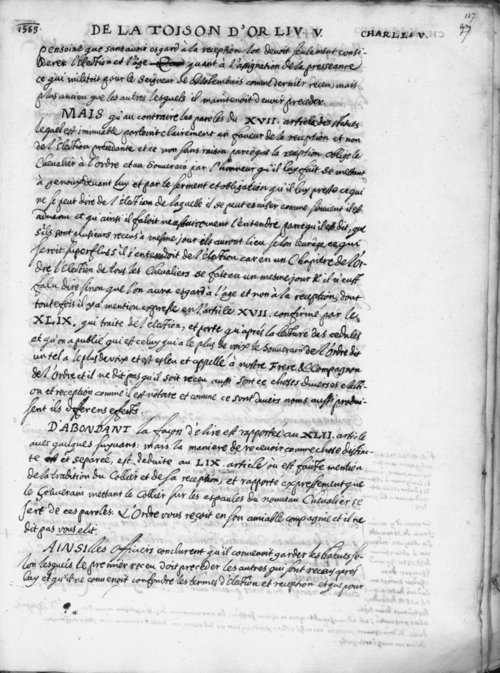 1553 DE LA TOISON D'OR LIV. V. CHARLES V. 117
57
pensoine que sans avoir esgard a la reception l'on devoit seulement consi-
derer l'election et l'age quant a l'assignation de la presseance
ce qui militoit pour le Seigneur de comme dernier receu, mais
plus ancien que les autres lesquels il maintenoit devoir preceder.
MAIS qu'au contraire les paroles du XVII. article des statuts
lequel est immuable parloient clairement en faveur de la reception et non
de l'election precedente et ce non sans raison parce que la reception oblige le
Chevalier à l'ordre et au Souverain par l'honneur qu'il luy fait se mettant
à genoux devant luy et par le serment et obligation qu'il luy preste ce qui
ne se peut dire de l'election de laquelle il se peut excuser comme souvent il est
advenu et qu'ainsi il faloit necessairement l'entendre parce qu'il est dit, que
s'ils sont plusieurs receus a mesme jour ils auront lieu selon leur age ce qui
seroit superflus s'il s'entendoit de l'election car en un Chapitre de l'Or-
dre l'election de tous les Chevaliers se fait en un mesme jour & il n'eust
falu dire sinon que l'on aura esgard a l'age et non a la reception, dont
toutefois il y a mention expresse en l'article XVII. confirmé par le
XLIX, qui traite de l'election, et porte qu'apres la lecture des cedules
et qu'on a publié qui est celuy qui a le plus de voix le Souverain de l'Ordre dit
un tel a le plus de voix et est esleu et appellé a nostre Frere & Compagnon
de l'Ordre et il ne dit pas qu'il soit receu aussi sont ce choses diverses electi-
on et reception comme il est notoire et comme ce sont divers noms aussi produi-
sent ils differens effects.
D'ABONDANT la façon d'elire est rapportée au XLII. article
avec quelques suyvans: mais la maniere de recevoir comme chose distin-
te et separée, est deduite au LIX. article ou est faite mention
de la tradition du Collier et de sa reception, et rapporte expressement que
le Souverain mettant le Collier sur les espaules du nouveau Chevalier se
sert de ces paroles. L'Ordre vous reçoit en son amiable compagnie et il ne
dit pas vous elit.
AINSI les Officiers conclurent qu'il convenoit garder les statuts se-
lon lesquels le premier receu doit preceder les autres qui sont receus apres
luy et qu'il ne convenoit confondre les termes d'election et reception et que pour